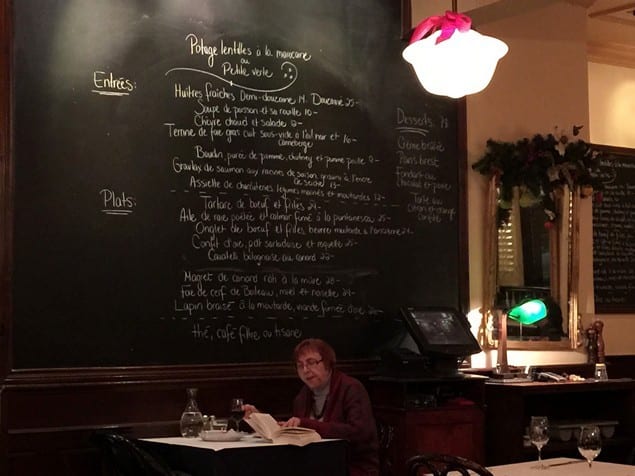 Potage lentilles à la marocaine
ou
Petite verte
Entrées:
Huîtres fraîches Demi-douzaine 14. Douzaine 25-
Soupe de poisson et sa rouille 10-
Chèvre chaud et salade 9-
Terrine de foie gras cuit sous-vide à l'ail noir et 16-
canneberge
Boudin, purée de pomme, chutney et pomme paille 9-
Gravlax de saumon aux racines de saison, à l'encre
de seiche 13-
Assiette de charcuteries légumes marinés et moutardes 12-
Plats:
Tartare de boeuf et frites 24-
Aile de raie poêlée et calmar fumé à la puntanesca 25-
Onglet de boeuf et frites beurre moutarde à l'ancienne 24-
Confit d'oie, pdt sarladaise et roquette 25-
Cavatelli bolognaise au canard 23-
Magret de canard rôti à la mûre 28-
Foie de cerf de Boileau, miel et noisette 24-
Lapin braisé à la moutarde, viande fumée d'oie
thé, café filtre, ou tisane
Desserts
Crème brûlée
Paris brest
Fondant au
chocolat et poire
Tarte au
citron et orange
confite